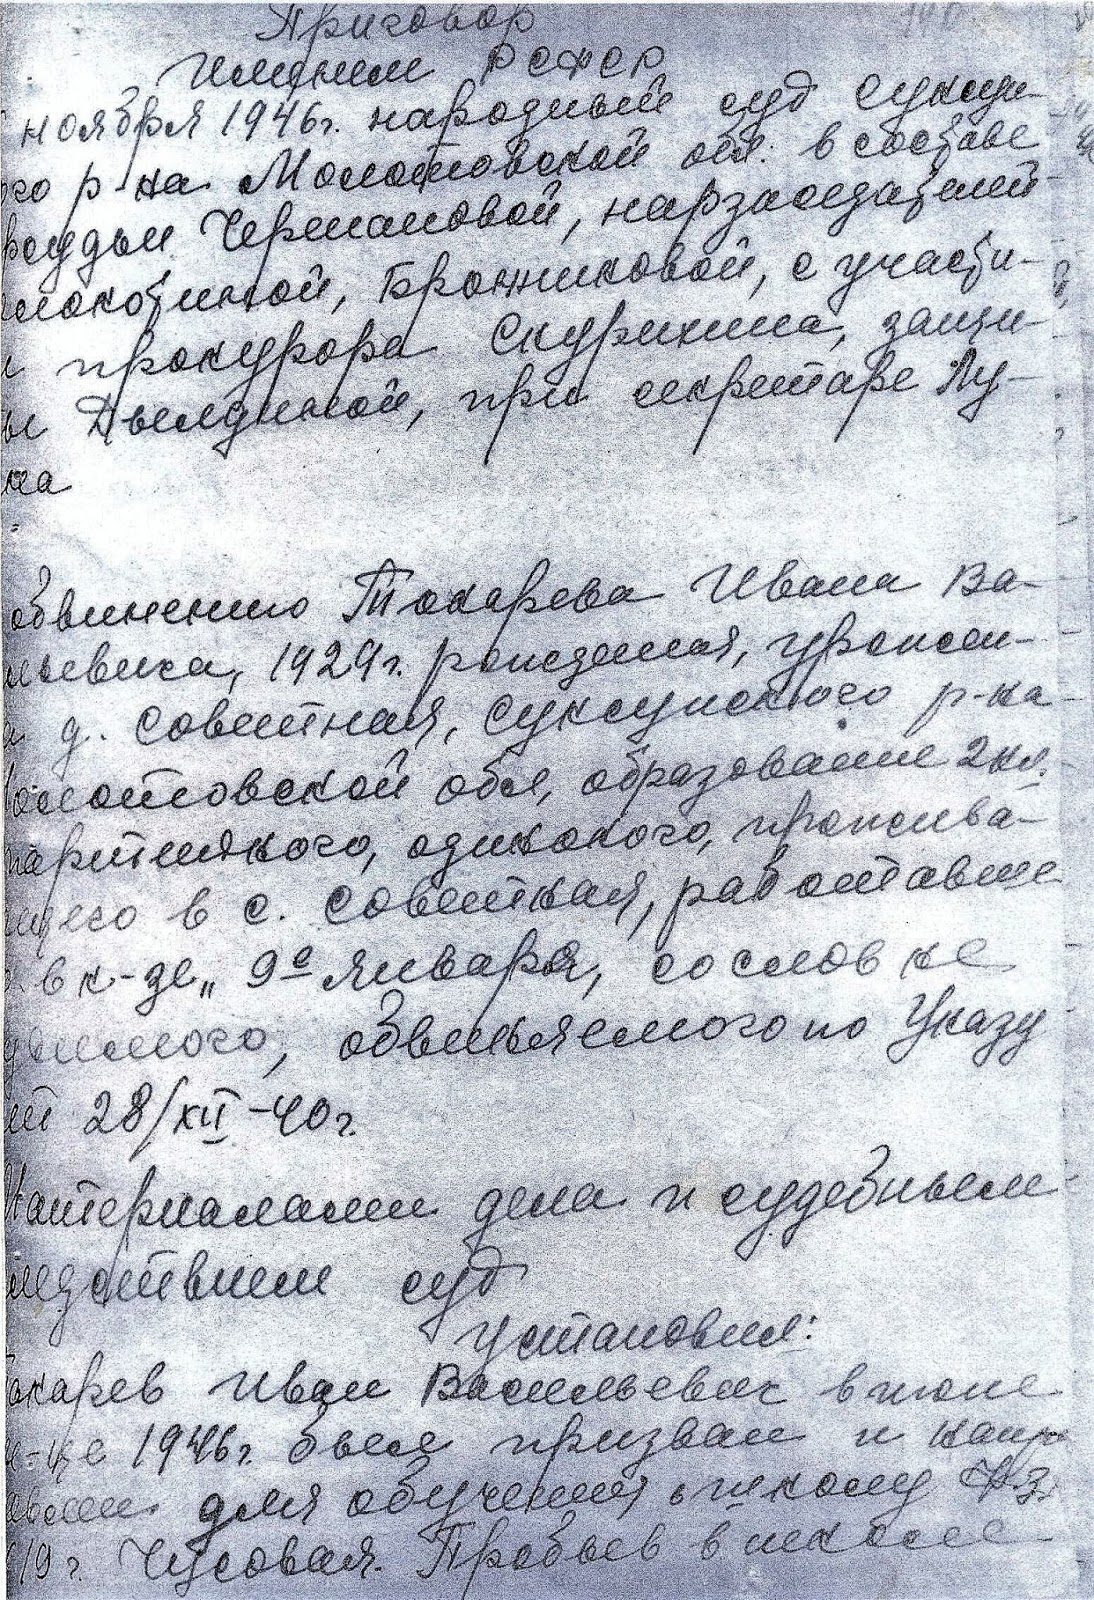 Приговор
Именем РСФСР
ноября 1946г. народный суд Суксун-
ого р-на Молотовской обл. в составе
росудьи Чермановой, нарзаседателей
локотиной, Бронниковой, с участи-
и прокурора Скурихина, защи-
ы Двелдиной, при секретаре Лу-
на
обвинению Токарева Ивана Ва-
льевича, 1929г. рождения, урожен-
а д. Советная, Суксунского р-на
олотовской обл, образование 2кл.
партийного, одинокого, прожива-
щего в с. Советная, работавше
в к-зе „9е января, со слов не
димого, обвиняемого по Указу
от 28/XII-40г.
Материалами дела и судебным
ледствием суд
Установил:
окарев Иван Васильевич в июне
м-це 1946г. был призван и напр
авлен для обучения в школу ф.з.
№19 г. Чусовая. Пробыв в школе